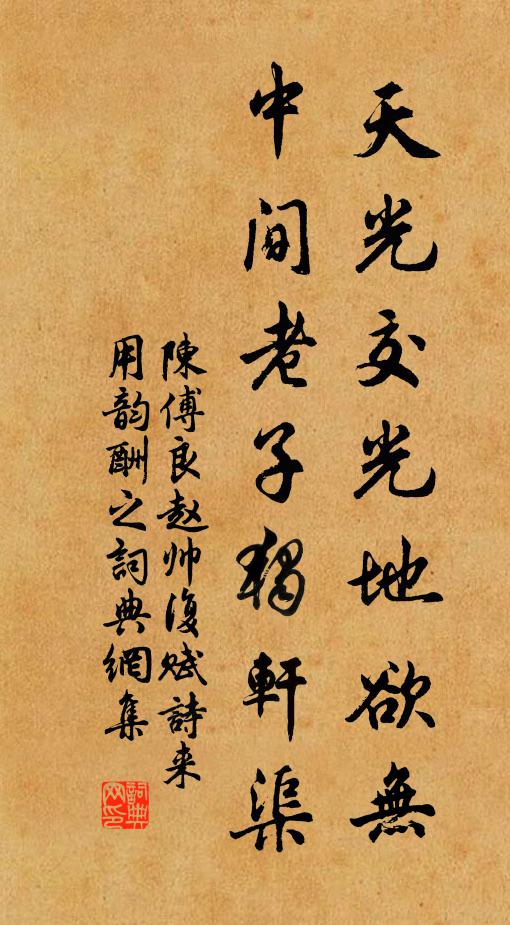 天光交光地欲無
中間老子獨軒渠
陳傅良赵帅復赋詩来
用韵酬之詞典網集
詞典网印